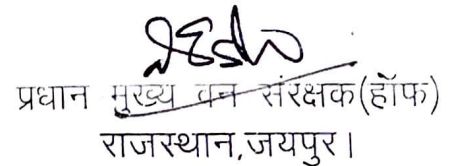 प्रधान मुख्य वन संरक्षक(हॉफ)
राजस्थान,जयपुर।